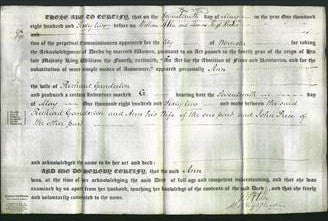 THESE ARE TO CERTIFY, that on the Seventeenth day of May in the year One thousand
eight hundred and Sixty two before us William and
two of the perpetual Commissioners appointed for the City of Worcester for taking
the Acknowledgments of Deeds by married Women, pursuant to an Act passed in the fourth year of the reign of His
late Majesty King William the Fourth, entitled, "An Act for the Abolition of Fines and Recoveries, and for the
substitution of more simple modes of Assurance," appeared personally Ann
the wife of Richard Ganderton
and produced a certain Indenture marked G. bearing date the Seventeenth day
of May One thousand eight hundred and Sixty two and made between the said
Richard Ganderton and Ann his Wife of the one part and John of
the other part
and acknowledged the same to be her act and deed:
AND WE DO HEREBY CERTIFY, that the said Ann
was, at the time of her acknowledging the said Deed, of full age and competent understanding, and that she was
examined by us apart from her husband, touching her knowledge of the contents of the said Deed, and that she freely
and voluntarily consented to the same.